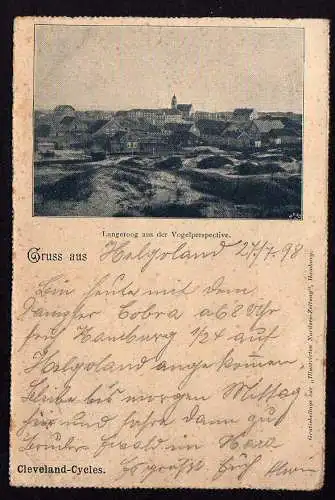 Langeroog aus der Vogelperspective.
Gruss aus Helgoland 27/7.98
Bin heute mit dem
Dampfer Cobra ab 8 Uhr
früh Hamburg 1/24 auf
Helgoland angekommen.
Bleibe bis morgen Mittag
hier und fahre dann auf
Bruder Ewald in
Es grüsst Euch
Cleveland-Cycles.
Gratisbeilage der „Illustrirten Nordsee-Zeitung", Hamburg.